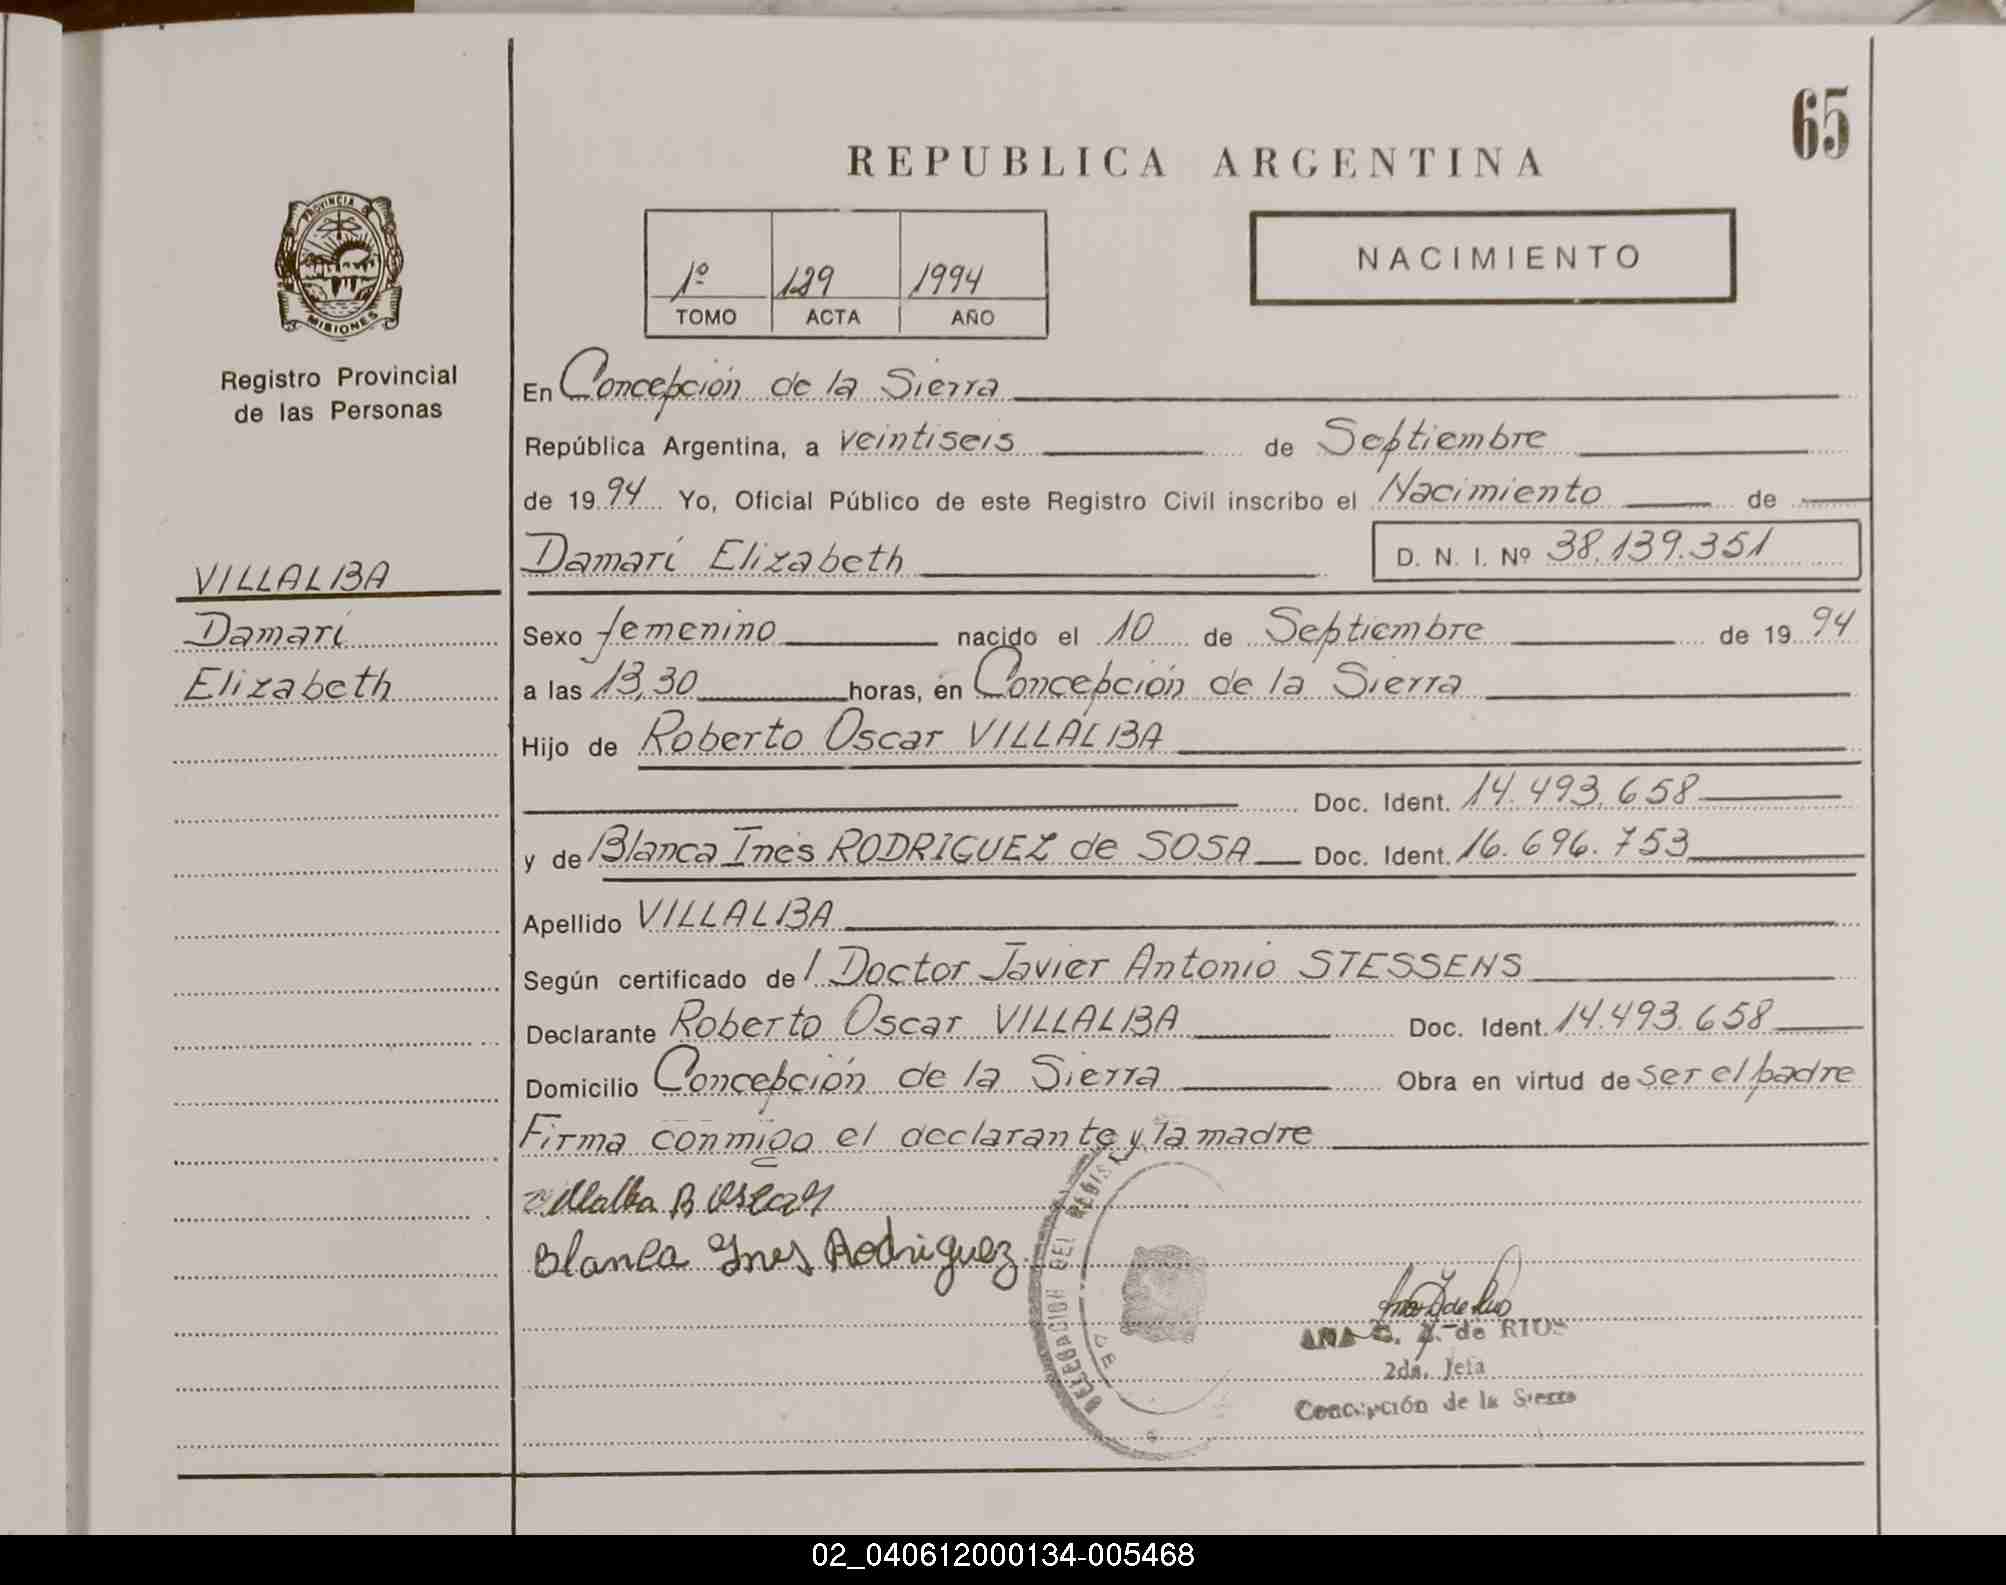 65
REPUBLICA ARGENTINA
PROVINCIA DE
MISIONES
Registro Provincial
de las Personas
1º 129 1994
TOMO ACTA AÑO
NACIMIENTO
En Concepción de la Sierra
República Argentina, a veintiseis de Septiembre
de 1994 Yo, Oficial Público de este Registro Civil inscribo el Nacimiento de
Damarí Elizabeth D. N. I. Nº 38.139.351
VILLALBA
Damarí
Elizabeth
Sexo femenino nacido el 10 de Septiembre de 1994
a las 13,30 horas, en Concepción de la Sierra
Hijo de Roberto Oscar VILLALBA
Doc. Ident. 14.493.658
y de Blanca Inés RODRIGUEZ de SOSA Doc. Ident. 16.696.753
Apellido VILLALBA
Según certificado de l Doctor Javier Antonio STESSENS
Declarante Roberto Oscar VILLALBA Doc. Ident. 14.493.658
Domicilio Concepción de la Sierra Obra en virtud de ser el padre
Firma conmigo el declarante y la madre
Villalba R Oscar
Blanca Ines Rodriguez
DELEGACION DEL REGIS
DE
ANA de RIOS
2da. Jefa
Concepción de la Sierra
02_040612000134-005468